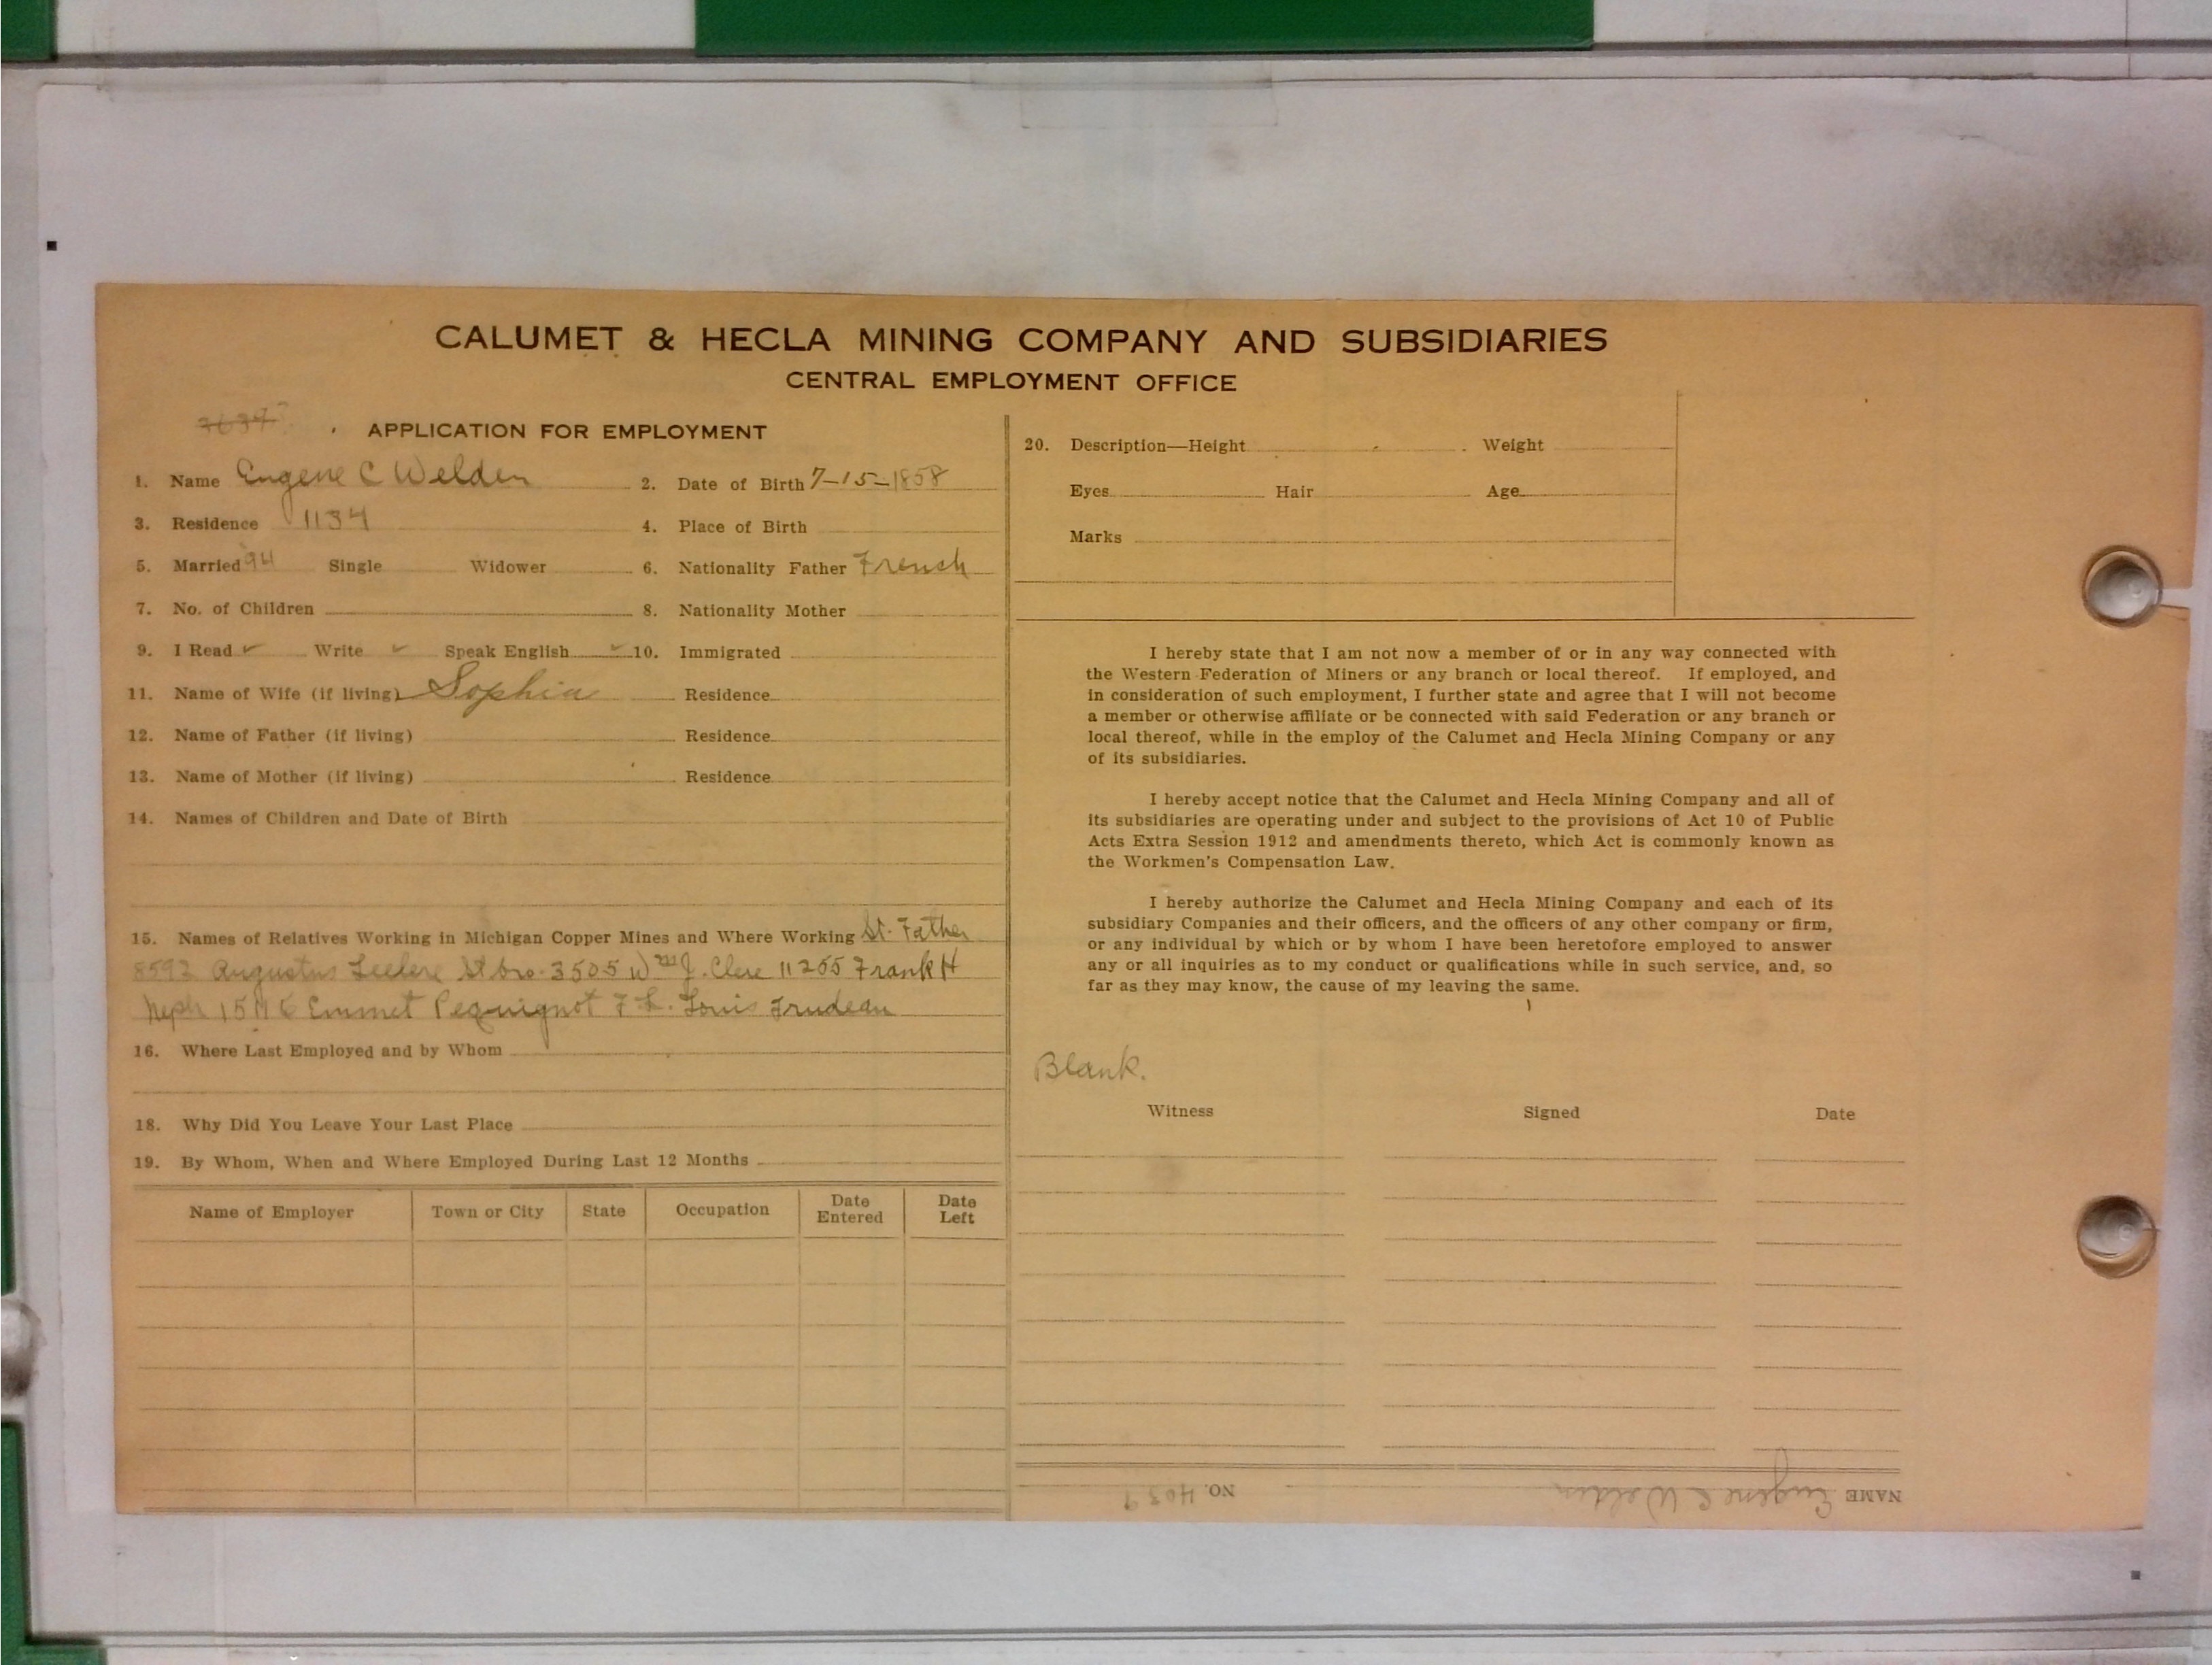 CALUMET & HECLA MINING COMPANY AND SUBSIDIARIES
CENTRAL EMPLOYMENT OFFICE
APPLICATION FOR EMPLOYMENT
1. Name Eugene C Welden 2. Date of Birth 7-15-1858
3. Residence 1134 4. Place of Birth
5. Married 94 Single Widower 6. Nationality Father French
7. No. of Children 8. Nationality Mother
9. I Read ✓ Write ✓ Speak English ✓ 10. Immigrated
11. Name of Wife (if living) Sophia Residence
12. Name of Father (if living) Residence
13. Name of Mother (if living) Residence
14. Names of Children and Date of Birth
15. Names of Relatives Working in Michigan Copper Mines and Where Working St. Father
8593 Augustus St bro. 3505 Wm J. 11265 Frank H
Neph Emmet Pequignot F. L. Louis Trudeau
16. Where Last Employed and by Whom
18. Why Did You Leave Your Last Place
19. By Whom, When and Where Employed During Last 12 Months
Name of Employer Town or City State Occupation Date Entered Date Left
20. Description—Height Weight
Eyes Hair Age
Marks
I hereby state that I am not now a member of or in any way connected with
the Western Federation of Miners or any branch or local thereof. If employed, and
in consideration of such employment, I further state and agree that I will not become
a member or otherwise affiliate or be connected with said Federation or any branch or
local thereof, while in the employ of the Calumet and Hecla Mining Company or any
of its subsidiaries.
I hereby accept notice that the Calumet and Hecla Mining Company and all of
its subsidiaries are operating under and subject to the provisions of Act 10 of Public
Acts Extra Session 1912 and amendments thereto, which Act is commonly known as
the Workmen's Compensation Law.
I hereby authorize the Calumet and Hecla Mining Company and each of its
subsidiary Companies and their officers, and the officers of any other company or firm,
or any individual by which or by whom I have been heretofore employed to answer
any or all inquiries as to my conduct or qualifications while in such service, and, so
far as they may know, the cause of my leaving the same.
Blank.
Witness Signed Date
NAME Eugene C Welden NO. 4039